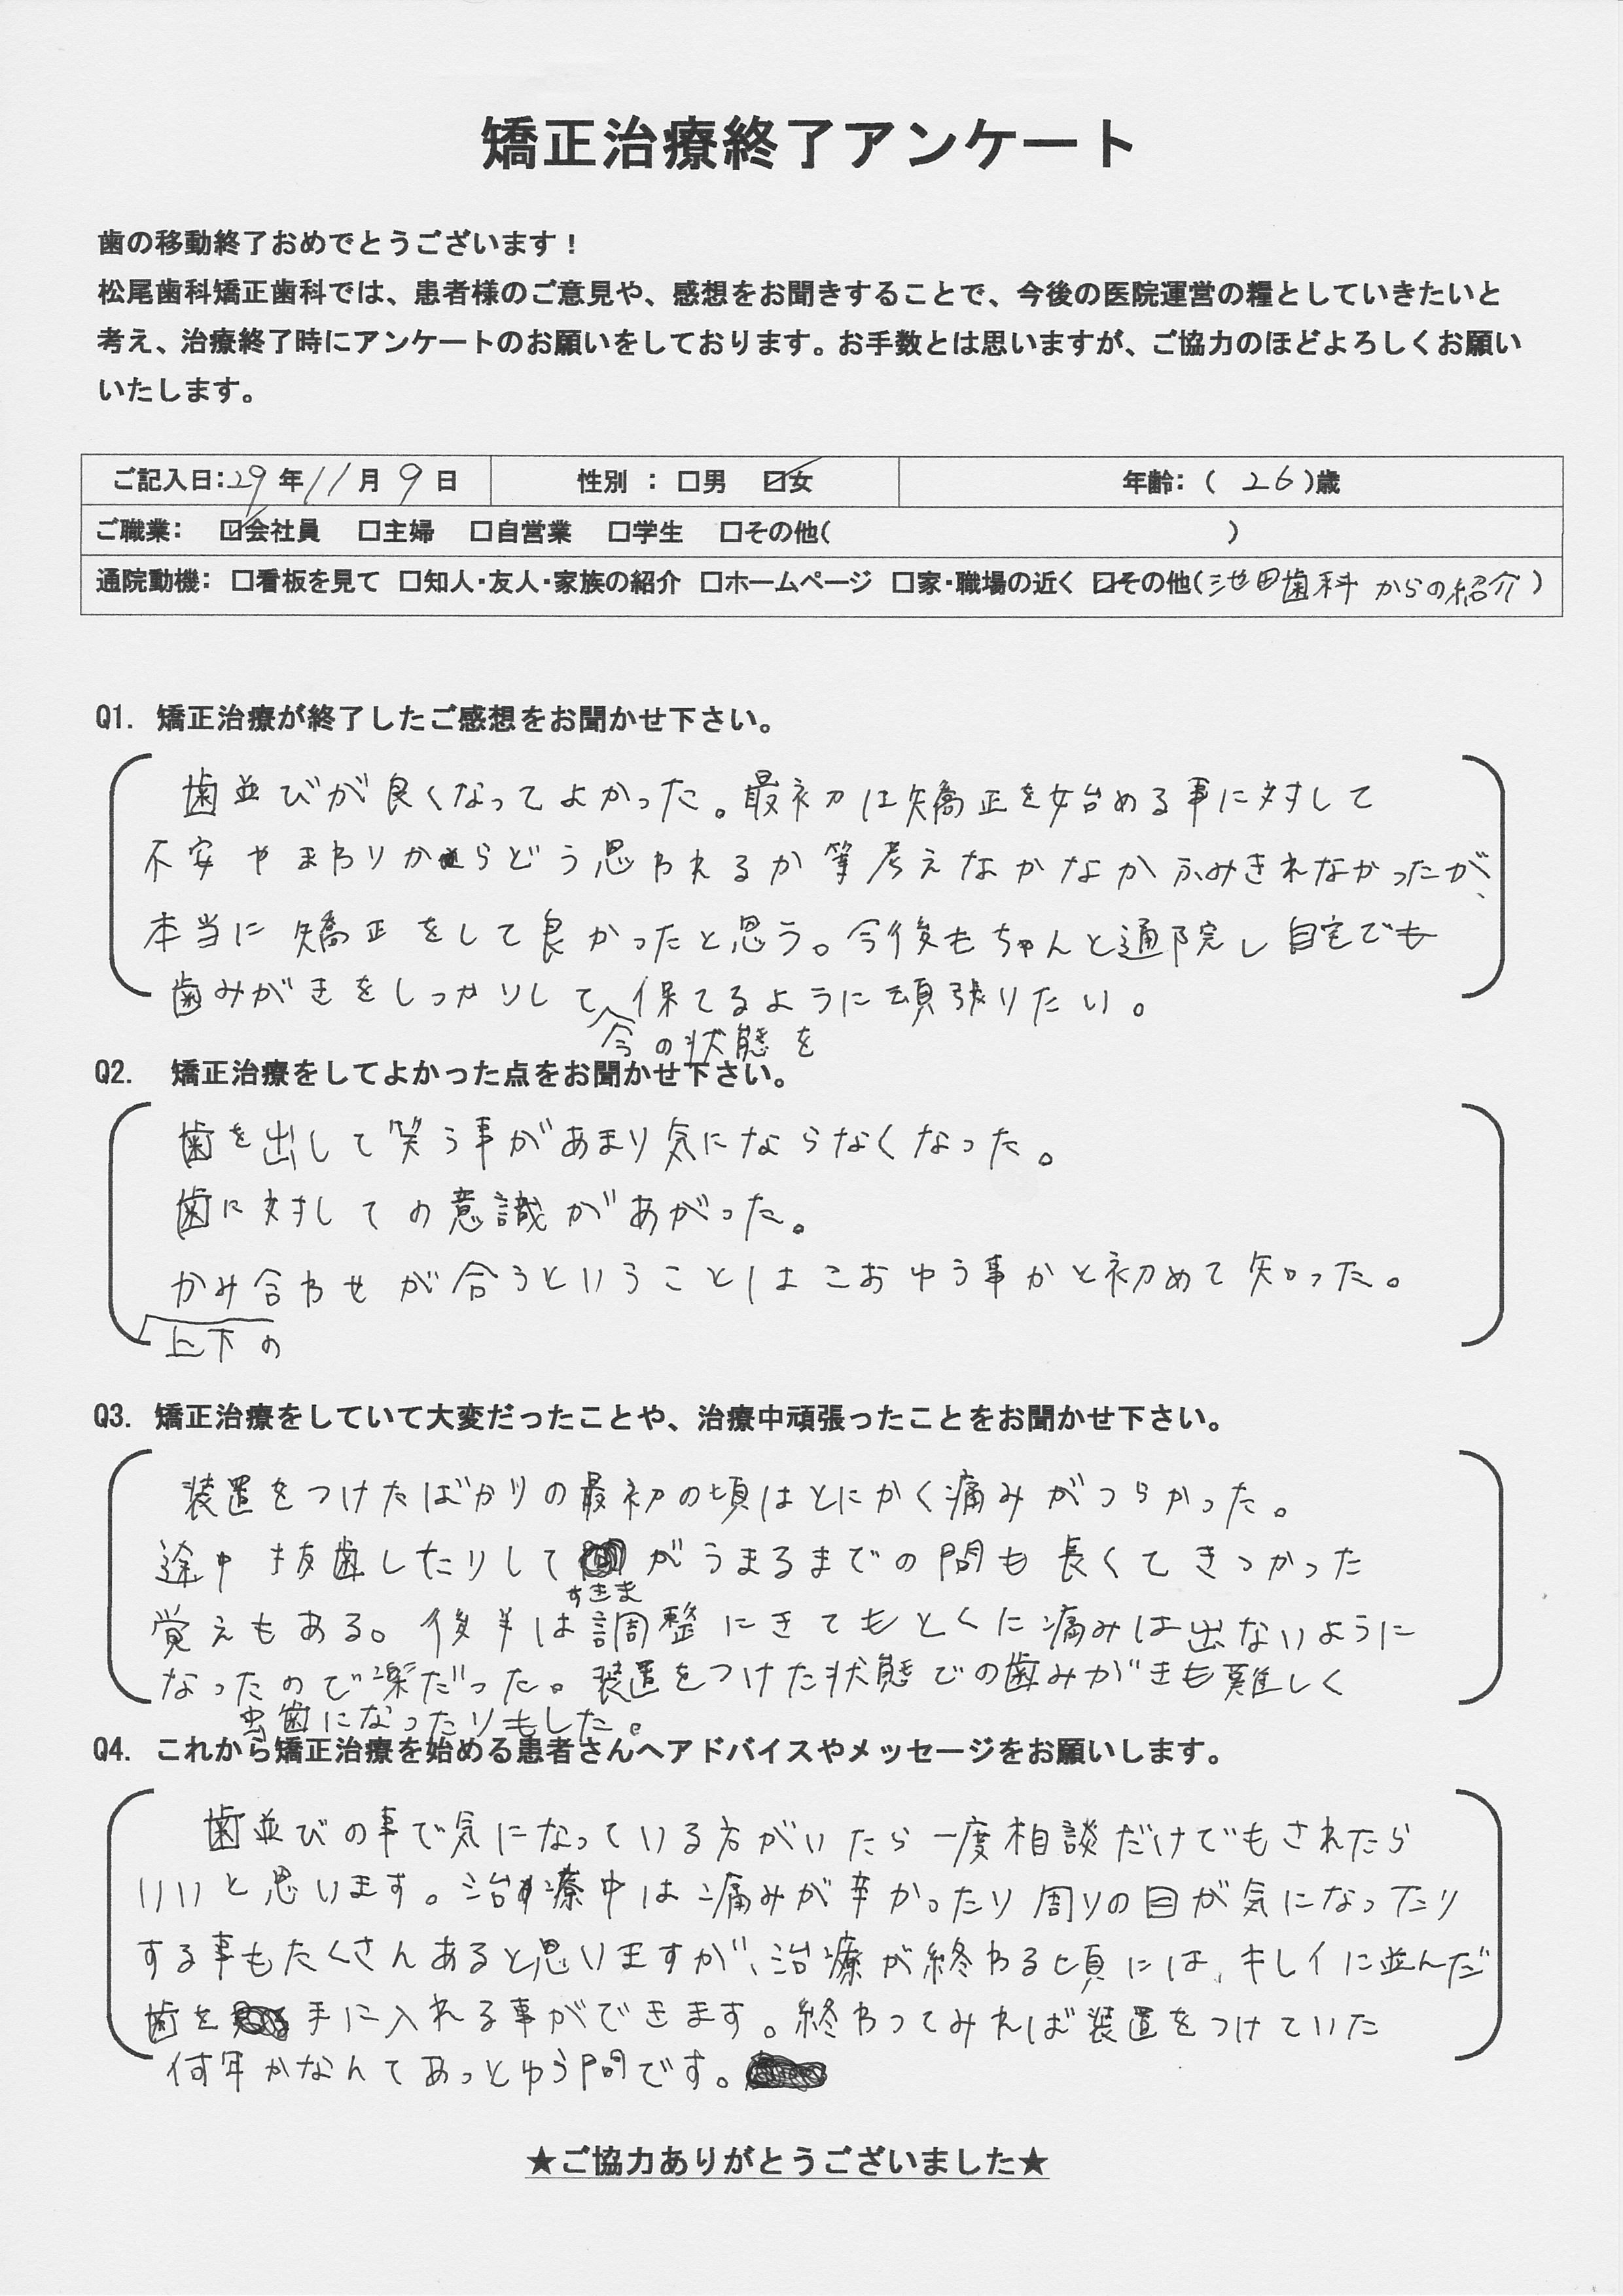 矯正治療終了アンケート
歯の移動終了おめでとうございます！
松尾歯科矯正歯科では、患者様のご意見や、感想をお聞きすることで、今後の医院運営の糧としていきたいと
考え、治療終了時にアンケートのお願いをしております。お手数とは思いますが、ご協力のほどよろしくお願い
いたします。
ご記入日：29年11月9日 性別 ： □男 ☑女 年齢：（ 26 ）歳
ご職業： ☑会社員 □主婦 □自営業 □学生 □その他( )
通院動機： □看板を見て □知人・友人・家族の紹介 □ホームページ □家・職場の近く ☑その他(池田歯科 からの紹介 )
Q1. 矯正治療が終了したご感想をお聞かせ下さい。
歯並びが良くなってよかった。最初は矯正を始める事に対して
不安やまわりからどう思われるか等考えなかなかふみきれなかったが、
本当に矯正をして良かったと思う。今後もちゃんと通院し自宅でも
歯みがきをしっかりして保てるように頑張りたい。
今の状態を
Q2. 矯正治療をしてよかった点をお聞かせ下さい。
歯を出して笑う事があまり気にならなくなった。
歯に対しての意識があがった。
かみ合わせが合うということはこおゆう事かと初めて知った。
上下の
Q3. 矯正治療をしていて大変だったことや、治療中頑張ったことをお聞かせ下さい。
装置をつけたばかりの最初の頃はとにかく痛みがつらかった。
途中 抜歯したりして がうまるまでの間も長くてきつかった
すきま
覚えもある。後半は調整にきてもとくに痛みは出ないように
なったので楽だった。装置をつけた状態での歯みがきも難しく
虫歯になったりもした。
Q4. これから矯正治療を始める患者さんへアドバイスやメッセージをお願いします。
歯並びの事で気になっている方がいたら一度相談だけでもされたら
いいと思います。治療中は痛みが辛かったり周りの目が気になったり
する事もたくさんあると思いますが、治療が終わる頃には、キレイに並んだ
歯を 手に入れる事ができます。終わってみれば装置をつけていた
何年かなんてあっとゆう間です。
★ご協力ありがとうございました★